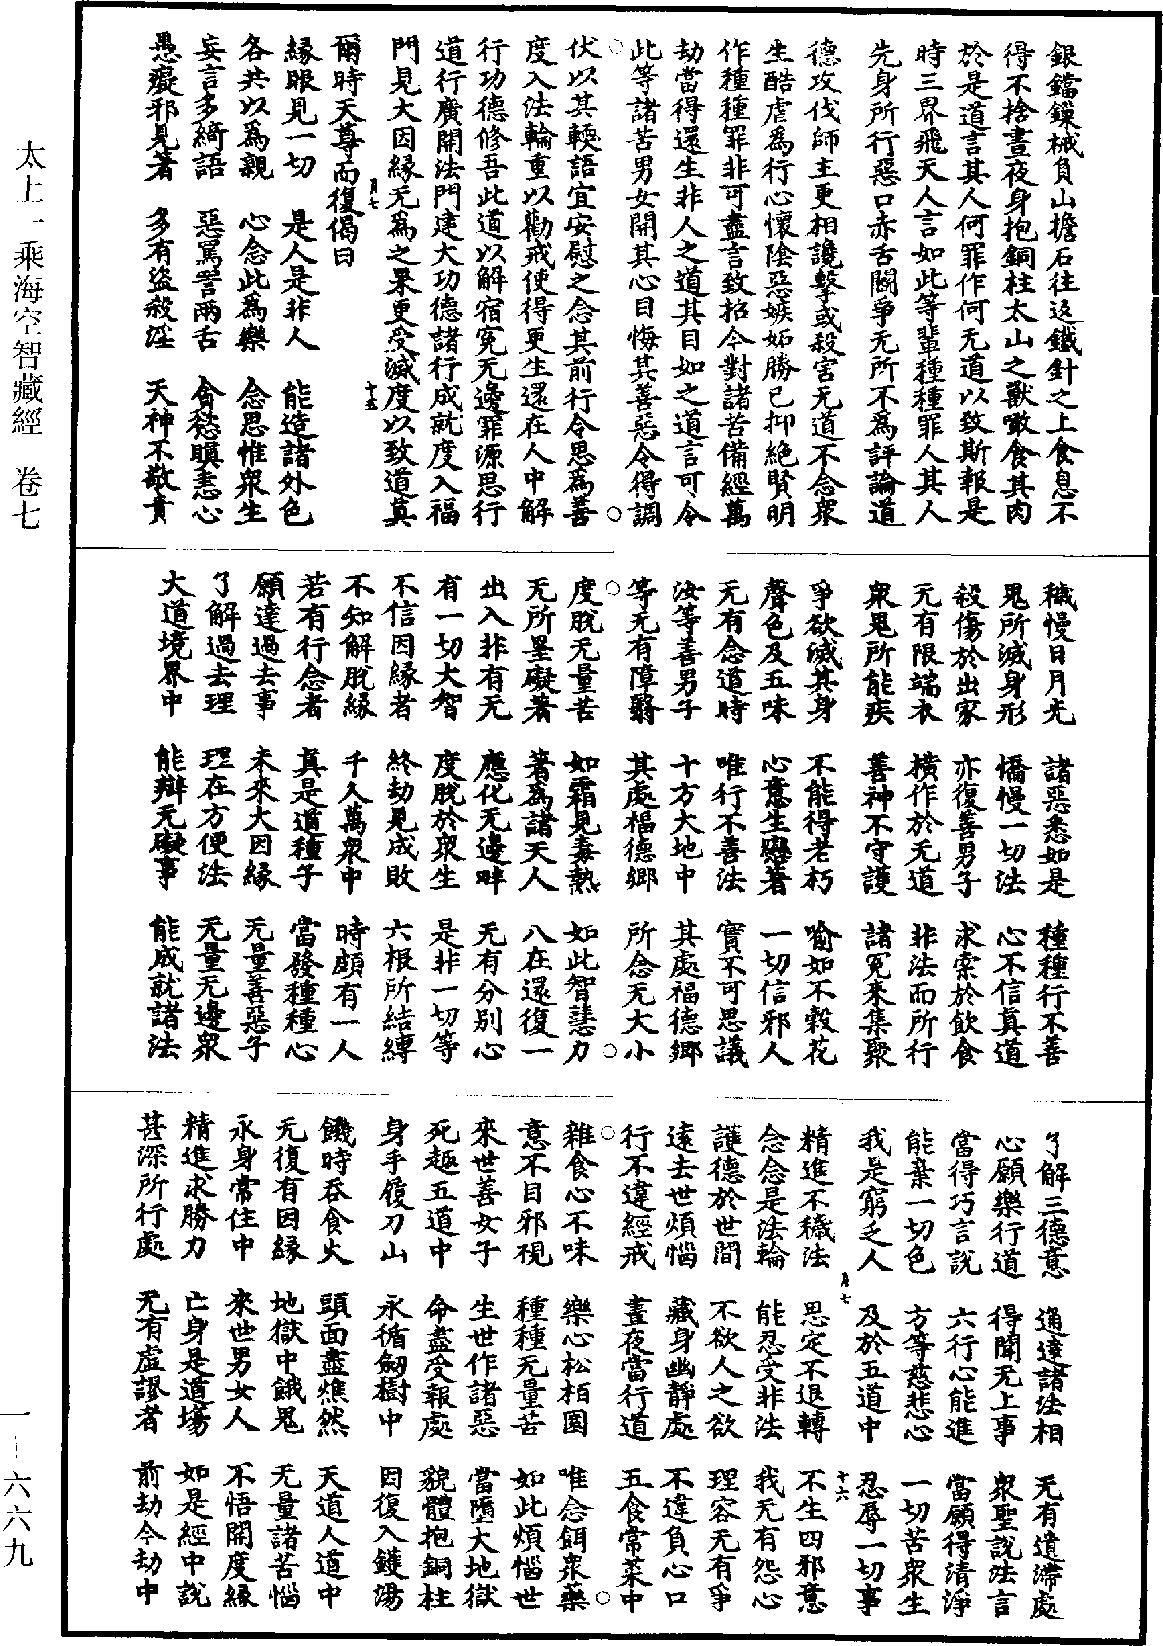 銀鐺鏁械負山擔石往返鐵針之上食息不
得不捨晝夜身抱銅柱太山之獸噉食其肉
於是道言其人何罪作何无道以致斯報是
時三界飛天人言如此等輩種種罪人其人
先身所行惡口赤舌鬭爭无所不為評論道
德攻伐師主更相讒擊或殺害无道不念衆
生酷虐為行心懷陰惡嫉妬勝已抑絕賢明
作種種罪非可盡言致招今對諸苦備經萬
劫當得還生非人之道其目如之道言可令
此等諸苦男女開其心目悔其善惡令得調
伏以其輭語宜安慰之念其前行令思為善
度入法輪重以勸戒使得更生還在人中解
行功德修吾此道以解宿寃无邊罪源思行
道行廣開法門建大功德諸行成就度入福
門見大因緣无為之果更受滅度以致道真
爾時天尊而復偈曰
緣眼見一切 是人是非人 能造諸外色
各共以為親 心念此為樂 念思惟衆生
妄言多綺語 惡罵詈兩舌 貪慾瞋恚心
愚癡邪見著 多有盜殺淫 天神不敬責
穢慢日月光 諸惡悉如是 種種行不善
鬼所滅身形 憍慢一切法 心不信真道
殺傷於出家 亦復善男子 求索於飲食
无有限端衣 橫作於无道 非法而所行
衆鬼所能疾 善神不守護 諸寃來集聚
爭欲滅其身 不能得老朽 喻如不榖花
聲色及五味 心意生戀著 一切信邪人
无有念道時 唯行不善法 實不可思議
汝等善男子 十方大地中 其處福德鄉
等无有障翳 其處福德鄉 所念无大小
度脫无量苦 如霜見毒熱 如此智慧力
无所罣礙著 著為諸天人 八在還復一
出入非有无 應化无邊畔 无有分別心
有一切大智 度脫於衆生 是非一切等
不信因緣者 終劫見成敗 六根所結縛
不知解脫緣 千人萬衆中 時頗有一人
若有行念者 真是道種子 當發種種心
願達過去事 未來大因緣 无量善惡子
了解過去理 理在方便法 无量无邊衆
大道境界中 能辯无礙事 能成就諸法
了解三德意 通達諸法相 无有遺滯處
心願樂行道 得聞无上事 衆聖說法言
當得巧言說 六行心能進 當願得清淨
能棄一切色 方等慈悲心 一切苦衆生
我是窮乏人 及於五道中 忍辱一切事
精進不穢法 思定不退轉 不生四邪意
念念是法輪 能忍受非法 我无有怨心
護德於世間 不欲人之欲 理容无有爭
遠去世煩惱 藏身幽靜處 不違負心口
行不違經戒 晝夜當行道 五食常菜中
雜食心不味 樂心松栢園 唯念餌衆藥
意不目邪視 種種无量苦 如此煩惱世
來世善女子 生世作諸惡 當墮大地獄
死趣五道中 命盡受報處 貌體抱銅柱
身手履刀山 永循劒樹中 因復入鑊湯
饑時吞食火 頭面盡燋然 天道人道中
无復有因緣 地獄中餓鬼 无量諸苦惱
永身常住中 來世男女人 不悟開度緣
精進求勝力 亡身是道場 如是經中說
甚深所行處 无有虛謬者 前劫今劫中
太上一乘海空智藏經 卷七
一—六六九